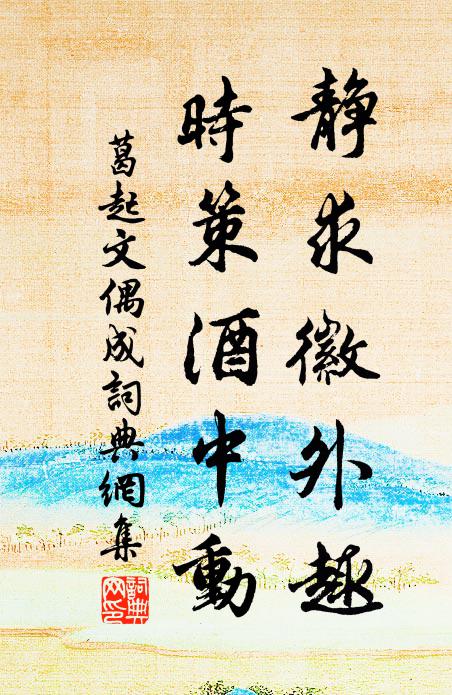 靜求徽外趣
時策酒中動
葛起文偶成詞典網集